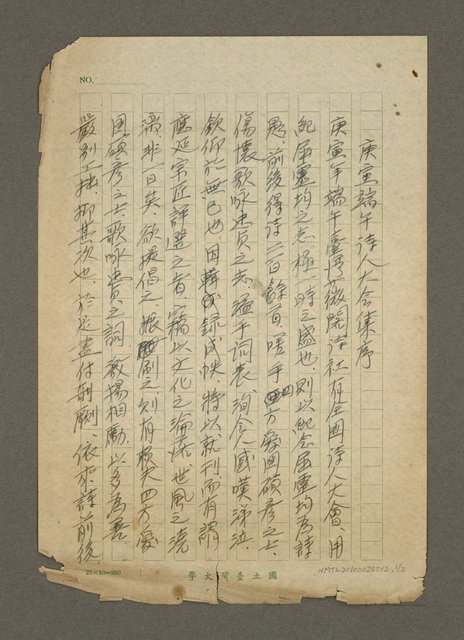 NO.
庚寅端午詩人大會集序
庚寅年端午臺灣微開詩社有全國詩人大會、用
紀屈靈均之志極一時之盛也、則以紀念屈靈均為詩
題、前後得詩二百餘首、嗟乎四方愛國碩彥之士、
傷懷歌咏忠貞之志、溢乎詞表、洵令人感嘆涕泣、
欽仰於無已也、因輯錄成帙、特以就刊而有謂
應延宗匠評選之者、竊以文化之淪、世風之澆
漓非一日矣、欲提倡之、振刷之則有賴夫四方愛
國碩彥之士、歌咏忠貞之詞、激揚相勵、以多為善
嚴別工拙、抑其次也、於是盡付剞劂、依來詩前後
25×10=250
國立臺灣大學
NMTL20100020012, 1/2